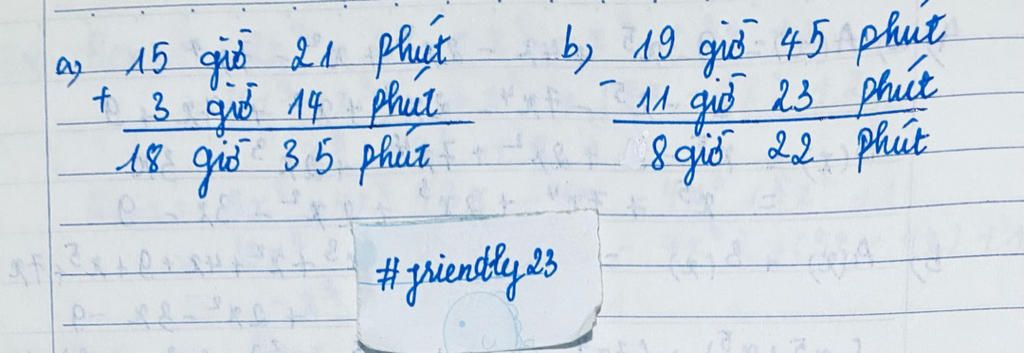 a, 15 giờ 21 phút
+ 3 giờ 14 phút
18 giờ 35 phút
b, 19 giờ 45 phút
- 11 giờ 23 phút
8 giờ 22 phút
#friendly23